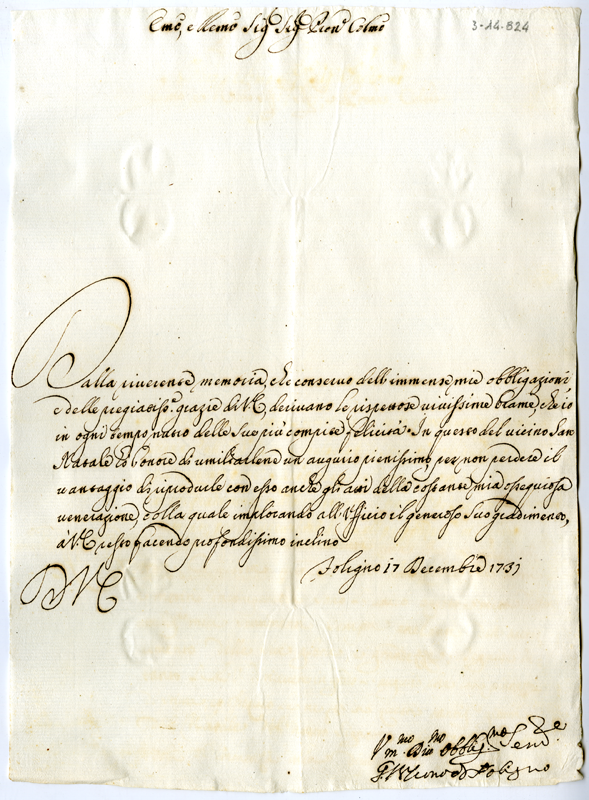 Emo, e Rmo Sig.r Sig.r Pron Colmo
3-14-824
Dalla riverente memoria, che conservo dell'immense mie obbligazioni,
e delle pregiatiss.e grazie di VE, derivano le rispettose vivissime brame, che io
in ogni tempo nutro delle Sue più compite felicità. In questo del vicino San
Natale ho l'onore di umiliallene un augurio pienissimo, per non perdere il
vantaggio di riprodurle con esso anche gli atti della costante mia ossequiosa
venerazione, colla quale implorando all'Ufficio il generoso Suo gradimento,
à VE resto facendo profondissimo inchino
Foligno 17 Decembre 1731
D VE
Vmo Dmo Obbligmo Serre
Vescovo di Foligno